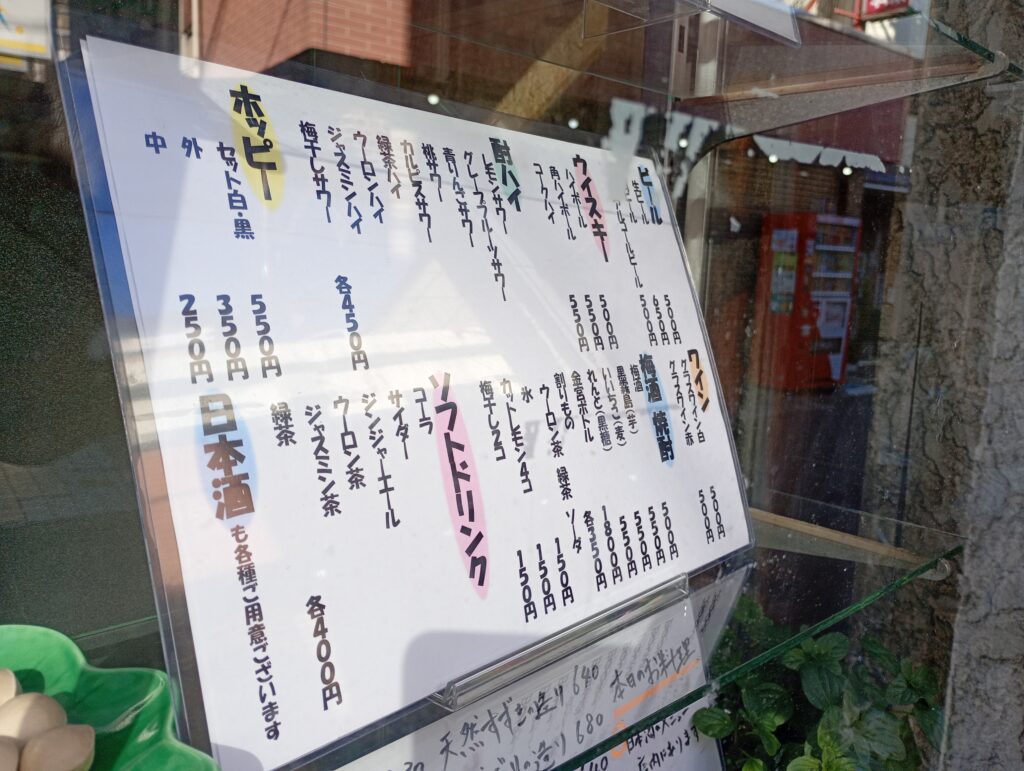 ビール
生ビール 500円
650円
ノンアルコールビール 500円
ウイスキー
ハイボール 500円
角ハイボール 550円
コークハイ 550円
酎ハイ
レモンサワー
グレープフルーツサワー
青りんごサワー
桃サワー
カルピスサワー
緑茶ハイ
ウーロンハイ
ジャスミンハイ
梅干しサワー
各450円
ホッピー
セット白・黒 550円
外 350円
中 250円
ワイン
グラスワイン白 500円
グラスワイン赤 500円
梅酒 焼酎
梅酒 500円
黒霧島(芋) 550円
いいちこ(麦) 550円
れんと(黒糖) 550円
金宮ボトル 1800円
割りもの 各350円
ウーロン茶 緑茶 ソーダ
氷 150円
カットレモン4コ 150円
梅干し2コ 150円
ソフトドリンク
コーラ
サイダー
ジンジャーエール
ウーロン茶
ジャスミン茶
緑茶
各400円
日本酒も各種ご用意ございます
本日のお料理
天然すずきの造り 640
造り 680
日本酒のメニュー
店内にあります